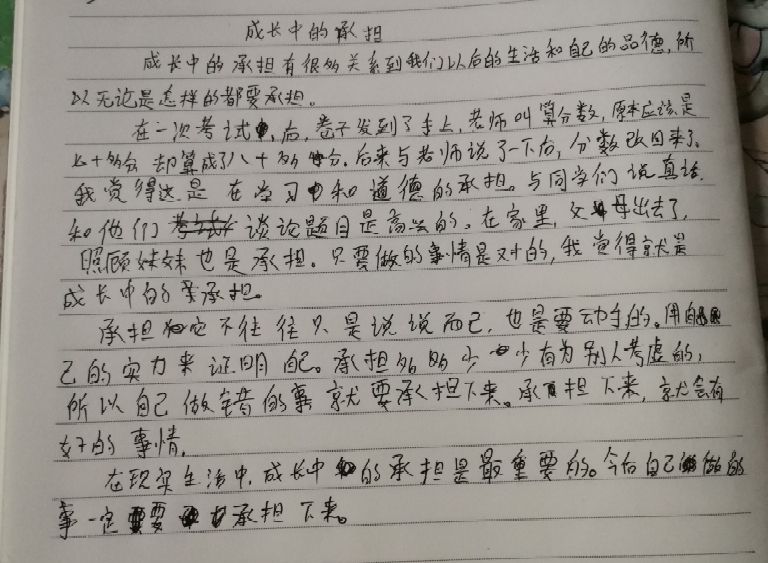 成长中的承担
成长中的承担有很多关系到我们以后的生活和自己的品德,所
以无论是怎样的都要承担。
在一次考试中,后,卷子发到了手上,老师叫算分数,原本应该是
七十多分 却算成了八十多分,后来与老师说了一下后,分数改回来了,
我觉得这是 在学习中和道德的承担。与同学们说真话,
和他们谈论题目是高兴的,在家里,父母出去了,
照顾妹妹也是承担。只要做的事情是对的,我觉得就是
成长中的承担。
承担它不往往只是说说而已,也是要动手的。用自
己的实力来证明自己。承担多多少少有为别人考虑的,
所以自己做错的事就要承担下来。承担下来,就会有
好的事情。
在现实生活中,成长中的承担是最重要的。今后自己做的
事一定要承担下来。